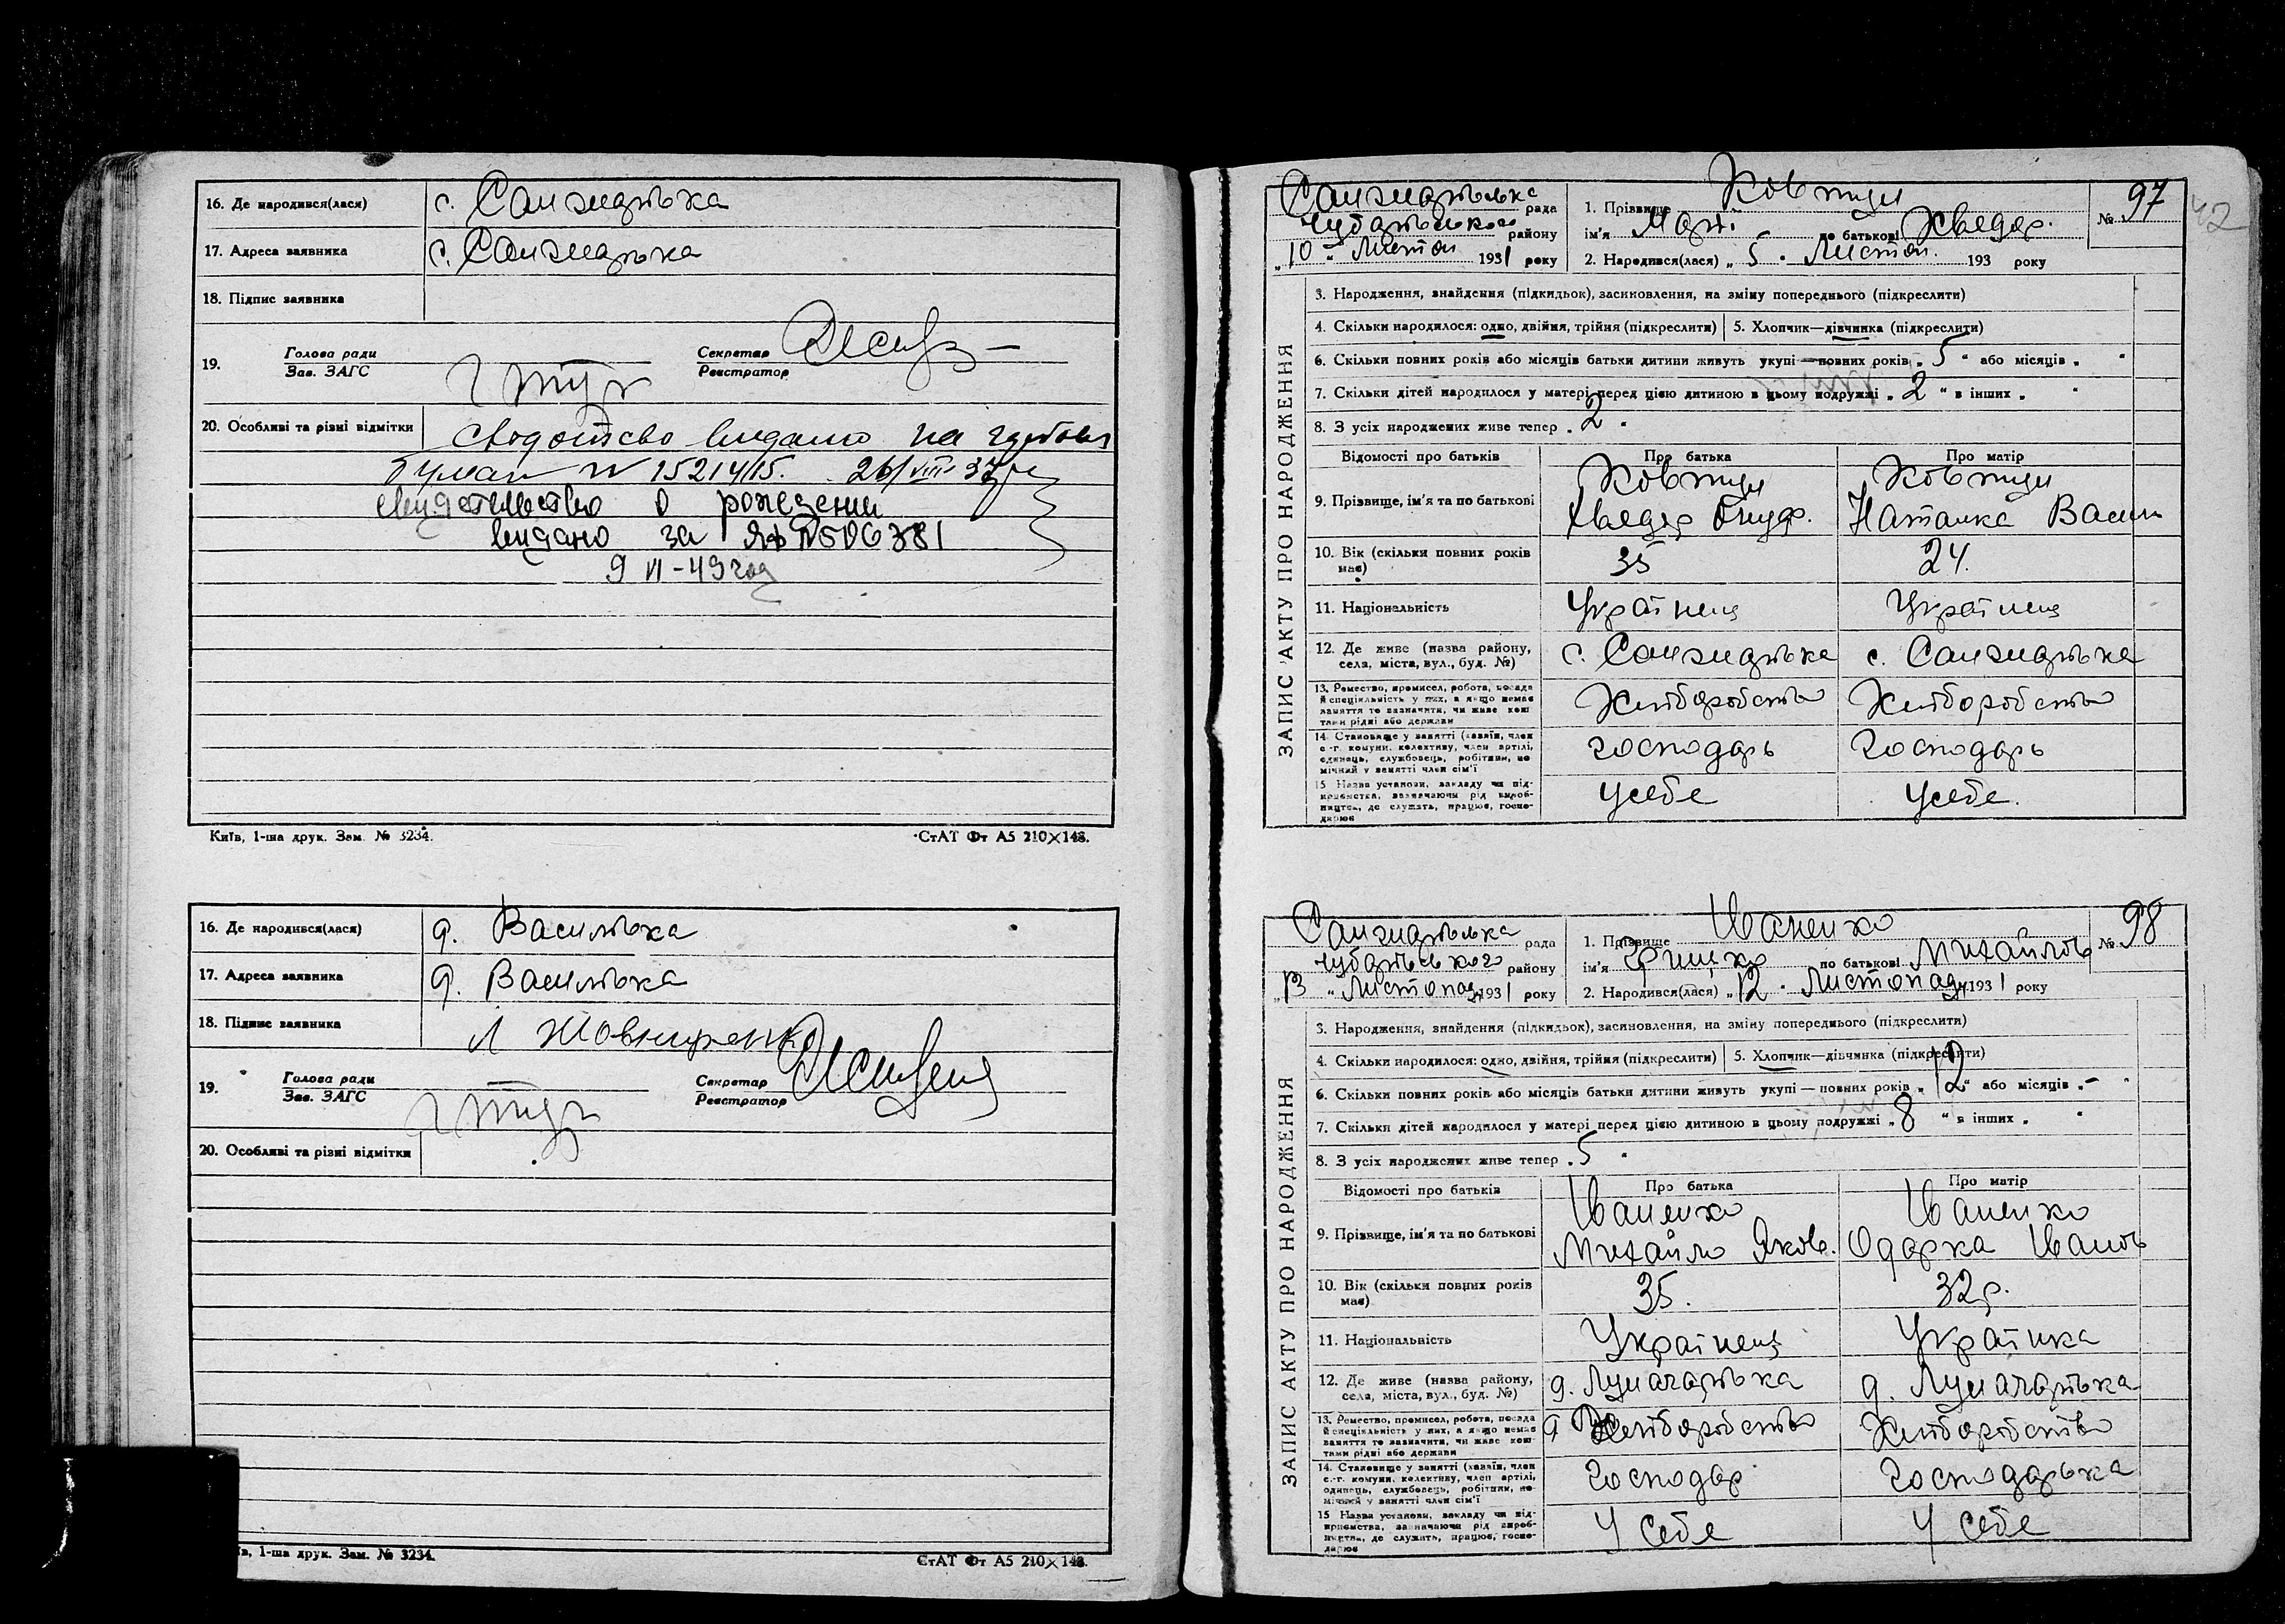 16. Де народився(лася) с. Санжарівка
17. Адреса заявника с. Санжарівка
18. Підпис заявника
19. Голова ради
Зав. ЗАГС
Секретар
Реєстратор
20. Особливі та різні відмітки
Сводоцтво видано на
№ 15214/15. 26/VIII 37р
свидетельство о рождении
видано за 506381
9 VI-49 год
Київ, 1-ша друк. Зам. № 3234.
СтАТ Фт А5 210×148.
16. Де народився(лася) д. Василівка
17. Адреса заявника д. Василівка
18. Підпис заявника
19. Голова ради
Зав. ЗАГС
Секретар
Реєстратор
20. Особливі та різні відмітки
1-ша друк. Зам. № 3234.
СтАТ Фт А5 210×148.
42
ЗАПИС АКТУ ПРО НАРОДЖЕННЯ
Санжарівська рада
Чубарівського району
„10 " Листоп 1931 року
1. Прізвище Ковтун
№ 97
ім'я Марі по батькові Хведор.
2. Народився(лася) „ 5 " Листоп. 193 року
3. Народження, знайдення (підкидьок), засиновлення, на зміну попереднього (підкреслити)
4. Скільки народилося: одно, двійня, трійня (підкреслити) 5. Хлопчик—дівчинка (підкреслити)
6. Скільки повних років або місяців батьки дитини живуть укупі — повних років „ 5 " або місяців „ "
7. Скільки дітей народилося у матері перед цією дитиною в цьому подружжі „ 2 " в інших „ "
8. З усіх народжених живе тепер „ 2 "
Відомості про батьків Про батька Про матір
9. Прізвище, ім'я та по батькові
Ковтун Хведор Онуф.
Ковтун Наталка Васил
10. Вік (скільки повних років має) 35 24.
11. Національність Українец Українец
12. Де живе (назва району, села, міста, вул., буд. №) с. Санжарівка с. Санжарівка
13. Ремество, промисел, робота, посада й спеціяльність у них, а якщо немає заняття то зазначити, чи живе коштами рідні або держави Хліборобство Хліборобство
14. Становище у занятті (хазяїн, член с.-г. комуни, колективу, член артілі, одинець, службовець, робітник, помічний у занятті член сім'ї господарь господарь
15 Назва установи, закладу чи підприємства, зазначаючи рід виробництва, де служать, працює, господарює усебе усебе.
ЗАПИС АКТУ ПРО НАРОДЖЕННЯ
Санжарівська рада
Чубарівського району
„13 " Листопад 1931 року
1. Прізвище Іваненко
№ 98
ім'я Грицко по батькові Михайлов
2. Народився(лася) „ 12 " Листопаду 1931 року
3. Народження, знайдення (підкидьок), засиновлення, на зміну попереднього (підкреслити)
4. Скільки народилося: одно, двійня, трійня (підкреслити) 5. Хлопчик—дівчинка (підкреслити)
6. Скільки повних років або місяців батьки дитини живуть укупі — повних років „ 12 " або місяців „ – "
7. Скільки дітей народилося у матері перед цією дитиною в цьому подружжі „ 8 " в інших „ "
8. З усіх народжених живе тепер „ 5 "
Відомості про батьків Про батька Про матір
9. Прізвище, ім'я та по батькові
Іваненко Михайло Яков.
Іваненко Одарка Іванов
10. Вік (скільки повних років має) 35. 32 р.
11. Національність Українец Українка
12. Де живе (назва району, села, міста, вул., буд. №) д. Луначарівка д. Луначарівка
13. Ремество, промисел, робота, посада й спеціяльність у них, а якщо немає заняття то зазначити, чи живе коштами рідні або держави Хліборобство Хліборобство
14. Становище у занятті (хазяїн, член с.-г. комуни, колективу, член артілі, одинець, службовець, робітник, помічний у занятті член сім'ї господар господарька
15 Назва установи, закладу чи підприємства, зазначаючи рід виробництва, де служать, працює, господарює У себе У себе